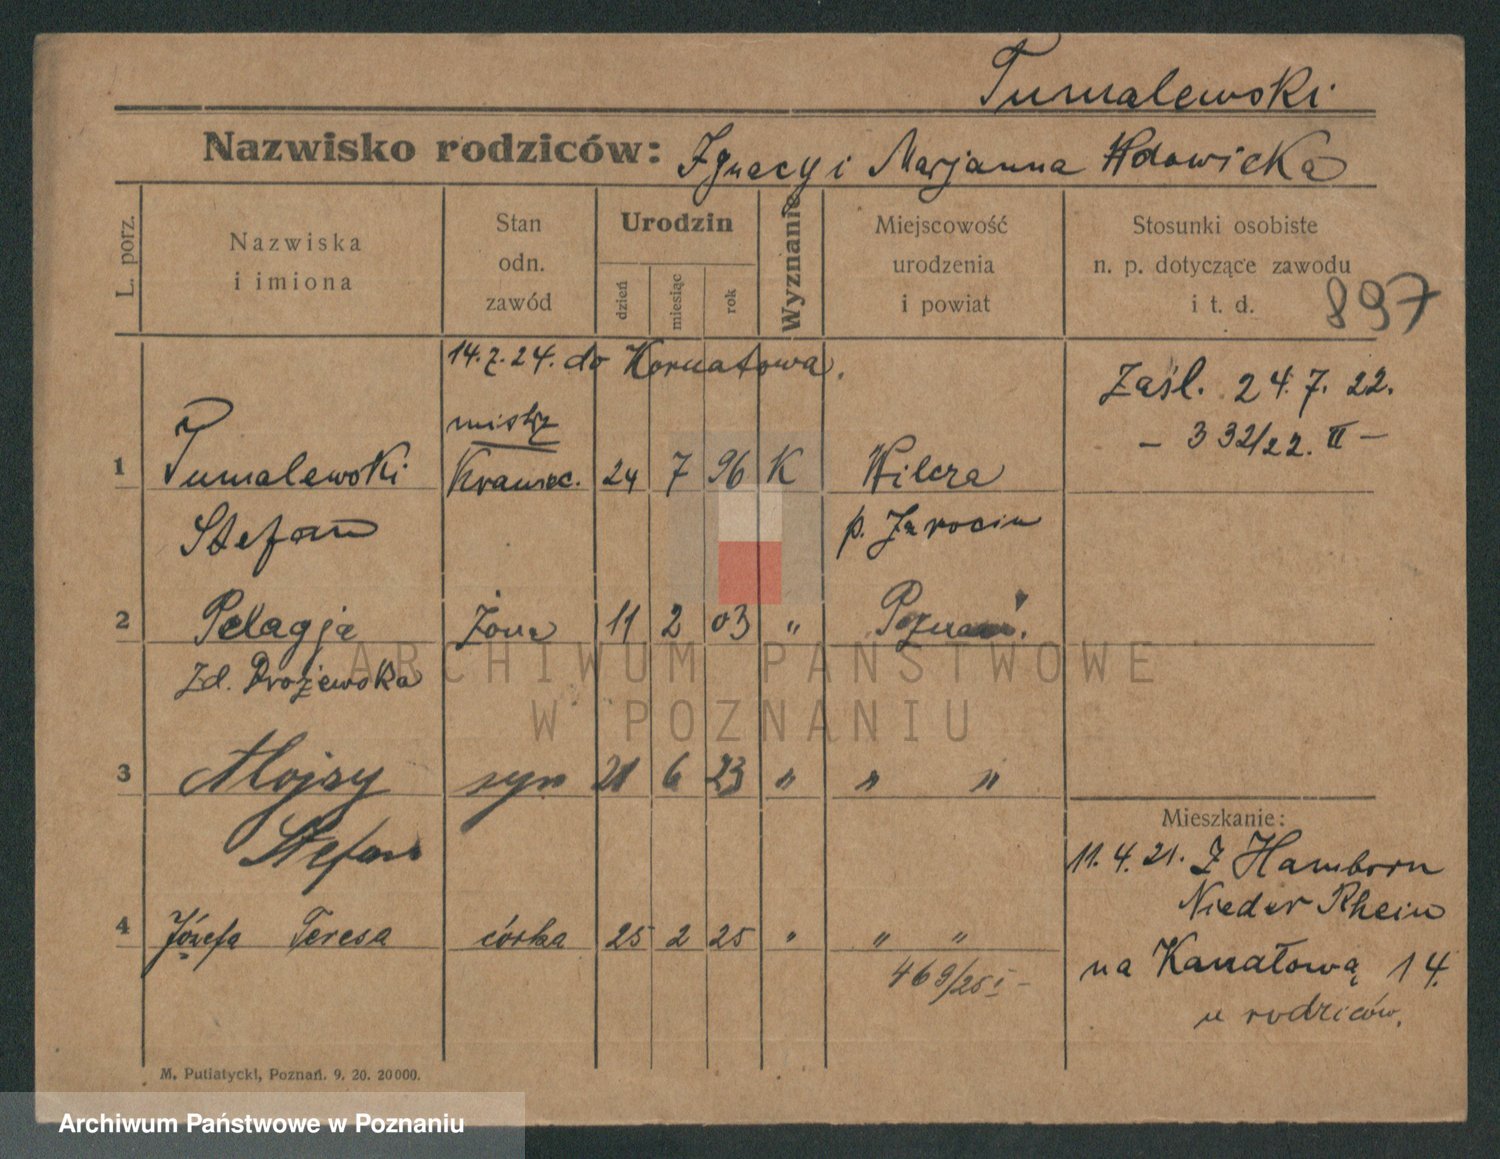 Tumalewski
Nazwisko rodziców: Ignacy i Marjanna Wdowicka
L. porz.
Nazwiska
i imiona
Stan
odn.
zawód
Urodzin
dzień
miesiąc
rok
Wyznanie
Miejscowość
urodzenia
i powiat
Stosunki osobiste
n. p. dotyczące zawodu
i t. d.
897
14.7.24. do Kornatowa.
Zaśl. 24.7.22.
- 332/22. II -
mistrz
1 Tumalewski krawiec. 24 7 96 K Wilcza
Stefan p. Jarocin
2 Pelagja Żona 11 2 03 „ Poznań.
zd. Drożewska
3 Alojzy syn 21 6 23 „ „ „
Stefan
4 Józefa Teresa córka 25 2 25 „ „ „
469/25 I -
Mieszkanie:
11.4.21. Z Hamborn
Nieder Rhein
na Kanałową 14.
u rodziców.
M. Putiatycki, Poznań. 9. 20. 20000.
ARCHIWUM PAŃSTWOWE
W POZNANIU
Archiwum Państwowe w Poznaniu